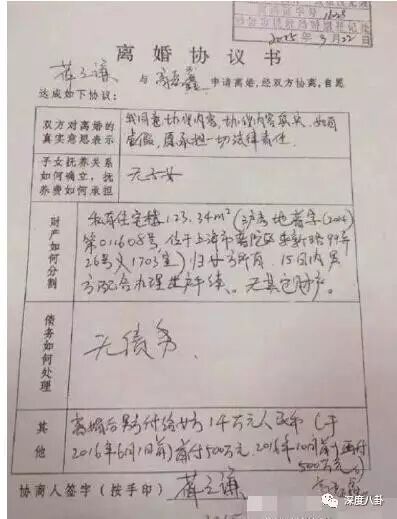 2015年9月22日
离婚协议书
薛之谦 与 高磊鑫 申请离婚,经双方协商,自愿
达成如下协议:
双方对离婚的
真实意思表示
我同意协议内容,协议内容真实,如有
虚假,愿承担一切法律责任
子女抚养关系
如何确立,抚
养费如何承担
无子女
财产如何分割
私有住宅楼123.34m²
第011608号,位于上海市普陀区 99弄
26号 1703室)归女方所有,15日内男
方配合办理过户手续。无其它财产。
债务如何处理
无债务.
其他
离婚后男方付给女方1千万元人民币(于
2016年6月1日前)首付500万元,2016年10月前再付
500万元
协商人签字(按手印) 薛之谦 高磊鑫
深度八卦